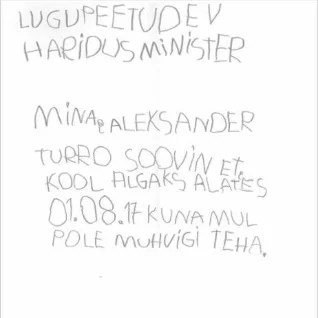 LUGUPEETUD EV
HARIDUSMINISTER
MINA, ALEKSANDER
TURRO SOOVIN ET,
KOOL ALGAKS ALATES
01.08.17 KUNA MUL
POLE MUHVIGI TEHA.